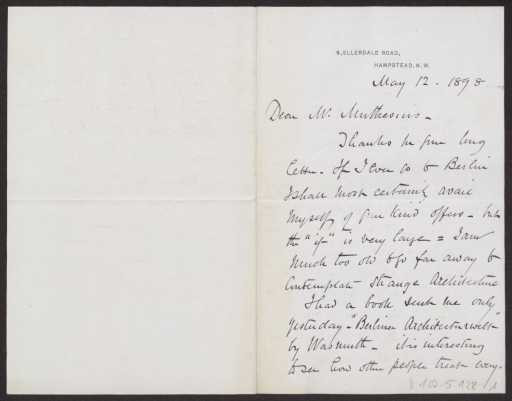 6, ELLERDALE ROAD,
HAMPSTEAD, N.W.
May 12 - 1898
Dear Mr. Muthesius -
Thanks for your long
letter - If I ever go to Berlin
I shall most certainly avail
myself of your kind offers - but
the "if" is very large = I am
much too old to go far away to
contemplate strange Architecture
I had a book sent me only
yesterday - "Berliner Architekturwelt"
by Wasmuth - it is interesting
to see how other people treat every-